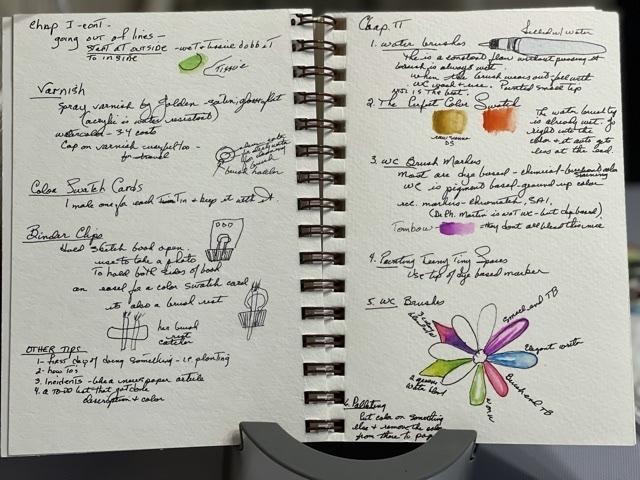 Chap I - cont -
going out of lines -
start at outside - wet + tissue dobb it
to inside
Tissue
Varnish
Spray varnish by Golden - satin, gloss, flat
(acrylic is water resistant)
watercolor - 3-4 coats
Cap on varnish
for travel
brush holder
Color Swatch Cards
I make one for each tin + keep it with it
Binder Clips
Hold sketch book open.
use to take a photo
To hold both sides of book
an easel for a color swatch card
its also a brush rest
her brush
rest
catcher
OTHER TIPS
1- first day of doing something - i.e. planting
2- how To's
3. Incidents - like a newspaper article
4. a TO-DO list that got done
description + color
Chap. II
1. water brushes
filled w/ water
The is a constant flow without pushing it
brush is always wet.
when the brush means out fill with
Pointed small tip
is the best.
2. The Perfect Color Swatch
raw sienna
DS
The water brush tip
is already wet. Go
right into the
color + it auto gets
less at the end.
3. WC Brush Markers
Most are dye based - chemical -
WC is pigment based - ground up color
rec. markers - chromatek, SAI,
(Dr. Ph. Martin is not WC - but dye based)
Tombow - they don't
4. Painting Teeny Tiny Spaces
Use tip of dye based marker
5. WC Brushes
Small and TB
Elegant writer
Brush and TB
2 greens
Water blend
6. Palleting
Put color on something
else + remove the color
from there to page